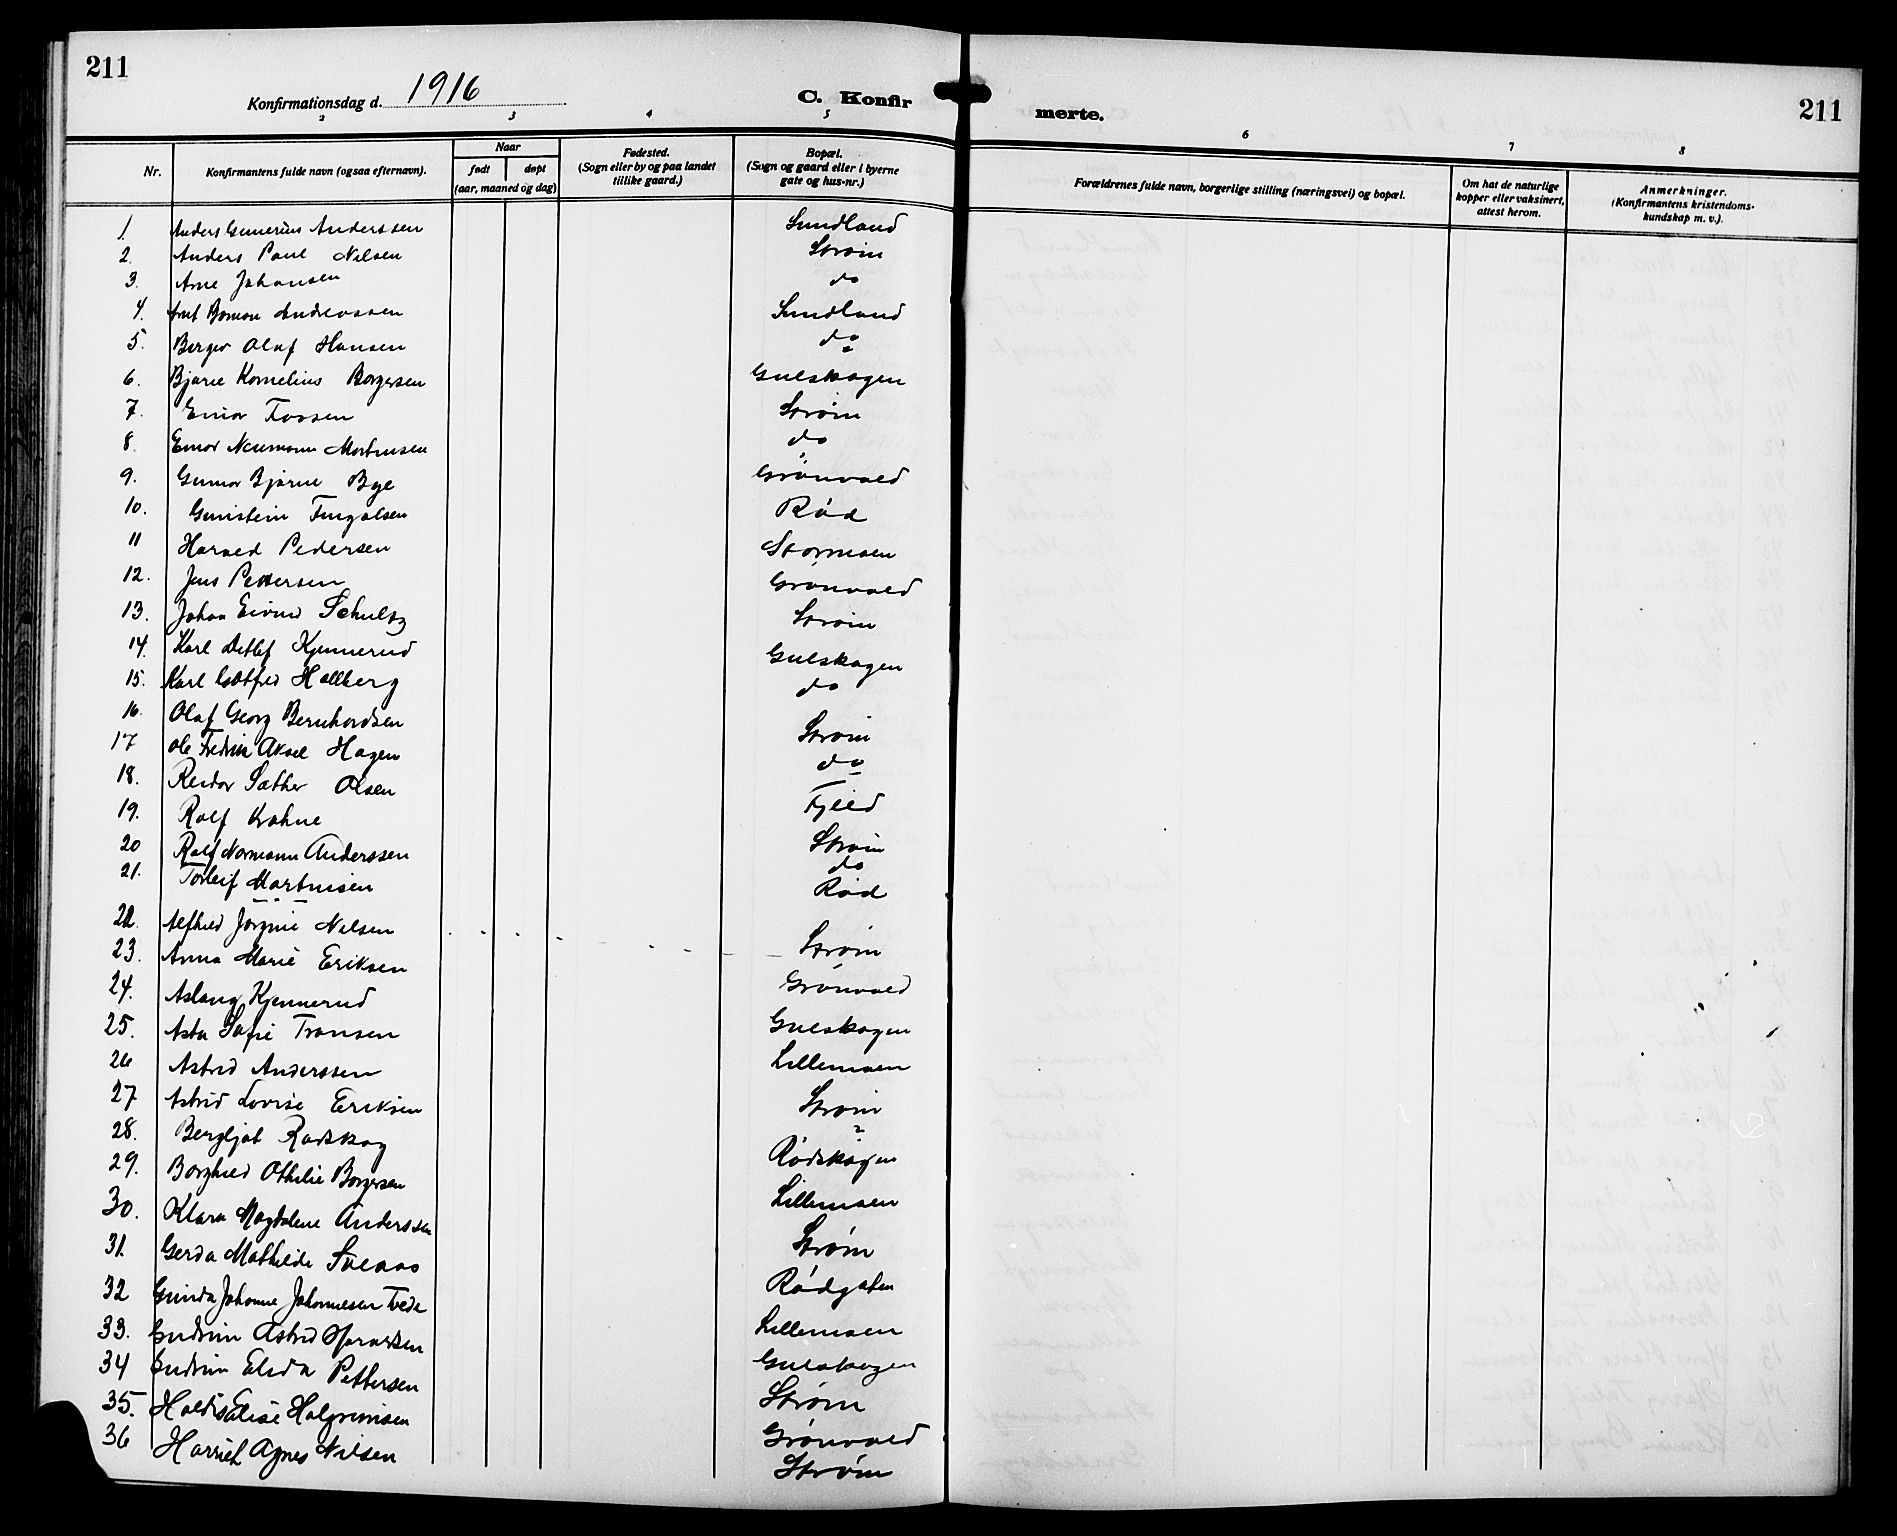 211
Konfirmationsdag d. 1916
C. Konfir
merte.
211
2
3
4
5
6
7
8
Nr.
Konfirmantens fulde navn (ogsaa efternavn).
Naar
født
døpt
(aar, maaned og dag)
Fødested.
(Sogn eller by og paa landet
tillike gaard.)
Bopæl.
(Sogn og gaard eller i byerne
gate og hus-nr.)
Forældrenes fulde navn, borgerlige stilling (næringsvei) og bopæl.
Om hat de naturlige
kopper eller vaksinert,
attest herom.
Anmerkninger.
(Konfirmantens kristendoms-
kundskap m. v.).
1. Anders Gunerius Anderssen Sundland
2. Anders Paul Nilsen Strøm
3. Arne Johansen do
4. Arnt Andreassen Sundland
5. Berger Olaf Hansen do
6. Bjarne Kornelius Borgersen Gulskogen
7. Einar Fossen Strøm
8. Einar Neumann Martinsen do
9. Gunnar Bjarne Bye Grønvold
10. Gunstein Rød
11 Harald Pedersen Stormoen
12. Jens Pettersen Grønvold
13. Johan Eivind Schultz Strøm
14. Karl Detlef Kjennerud Gulskogen
15. Karl Gotfred Hallberg do
16. Olaf Georg Bernhardsen Strøm
17 Ole Fredrik Aksel Hagen do
18. Reidar Sæther Olsen Fjeld
19. Rolf Krohne Strøm
20 Rolf Normann Anderssen do
21. Torleif Martinsen Rød
22. Alfhild Jørgine Nilsen Strøm
23. Anna Marie Eriksen Grønvold
24. Aslaug Kjennerud Gulskogen
25. Asta Sofie Fransen Lillemoen
26 Astrid Anderssen Strøm
27 Astrid Lovise Eriksen
28. Bergljot Rødskog Rødskogen
29. Borghild Othilie Borgersen Lillemoen
30. Klara Magdalene Anderssen Strøm
31. Gerda Mathilde Sveaas Rødgaten
32 Gunda Johanne Johannesen Tvede Lillemoen
33. Gudrun Astrid Haraldsen Gulskogen
34 Gudrun Elida Pettersen Strøm
35. Haldis Elise Halgrimsen Grønvold
36 Harriet Agnes Nilsen Strøm